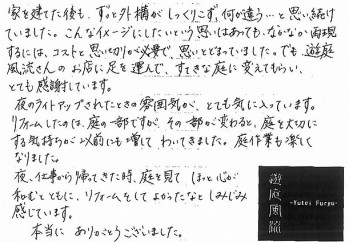 家を建てた後も、ずっと外構がしっくりこず、何が違う…と思い続け
ていました。こんなイメージにしたいという思いはあっても、なかなか再現
するには、コストと思い切りが必要で、思いとどまっていました。でも遊庭
風流さんのお店に足を運んで、すてきな庭に変えてもらい、
とても感謝しています。
夜のライトアップされたときの雰囲気が、とても気に入っています。
リフォームしたのは、庭の一部ですが、その一部が変わると、庭を大切に
する気持ちが以前にも増してわいてきました。庭作業も楽しく
なりました。
夜、仕事から帰ってきた時、庭を見てほっと心が
和むとともに、リフォームをしてよかったなとしみじみ
感じています。
本当にありがとうございました。
遊庭風流
-Yutei Furyu-